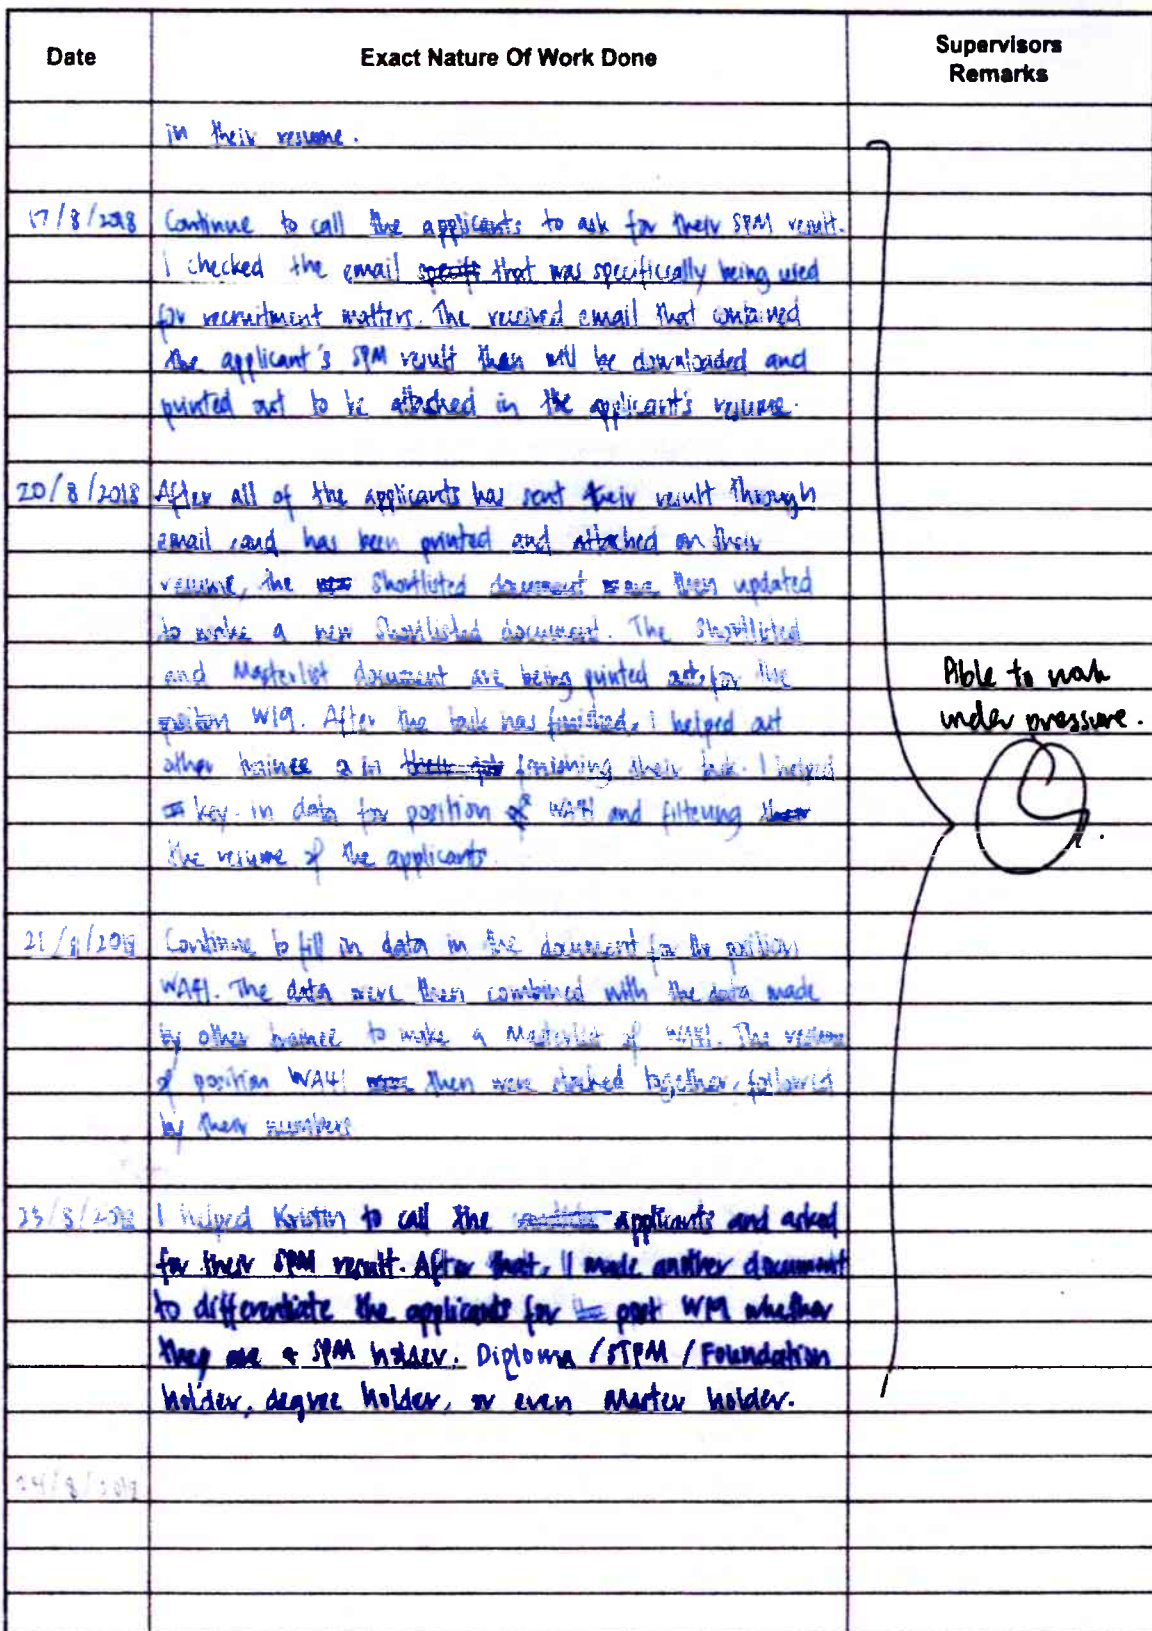 Date Exact Nature Of Work Done Supervisors Remarks
in their resume.
17/8/2018 Continue to call the applicants to ask for their SPM result.
I checked the email that was specifically being used
for recruitment matters. The received email that contained
the applicant's SPM result then will be downloaded and
printed out to be attached in the applicant's resume.
20/8/2018 After all of the applicants has sent their result through
email, and has been printed and attached on their
resume, the Shortlisted document are then updated
to make a new Shortlisted document. The Shortlisted
and Masterlist document are being printed out, for the
position W19. After the task has finished, I helped out
other trainee in finishing their task. I helped
key-in data for position WA41 and filtering
the resume of the applicants.
21/8/2018 Continue to fill in data in the document for the position
WA41. The data were then combined with the data made
by other trainee to make a Masterlist of WA41. The resume
of position WA41 then were stacked together, followed
by their numbers
23/8/2018 I helped Kristin to call the applicants and asked
for their SPM result. After that, I made another document
to differentiate the applicants for post whether
they are a SPM holder, Diploma / STPM / Foundation
holder, degree holder, or even Master holder.
24/8/2018
Able to work
under pressure.